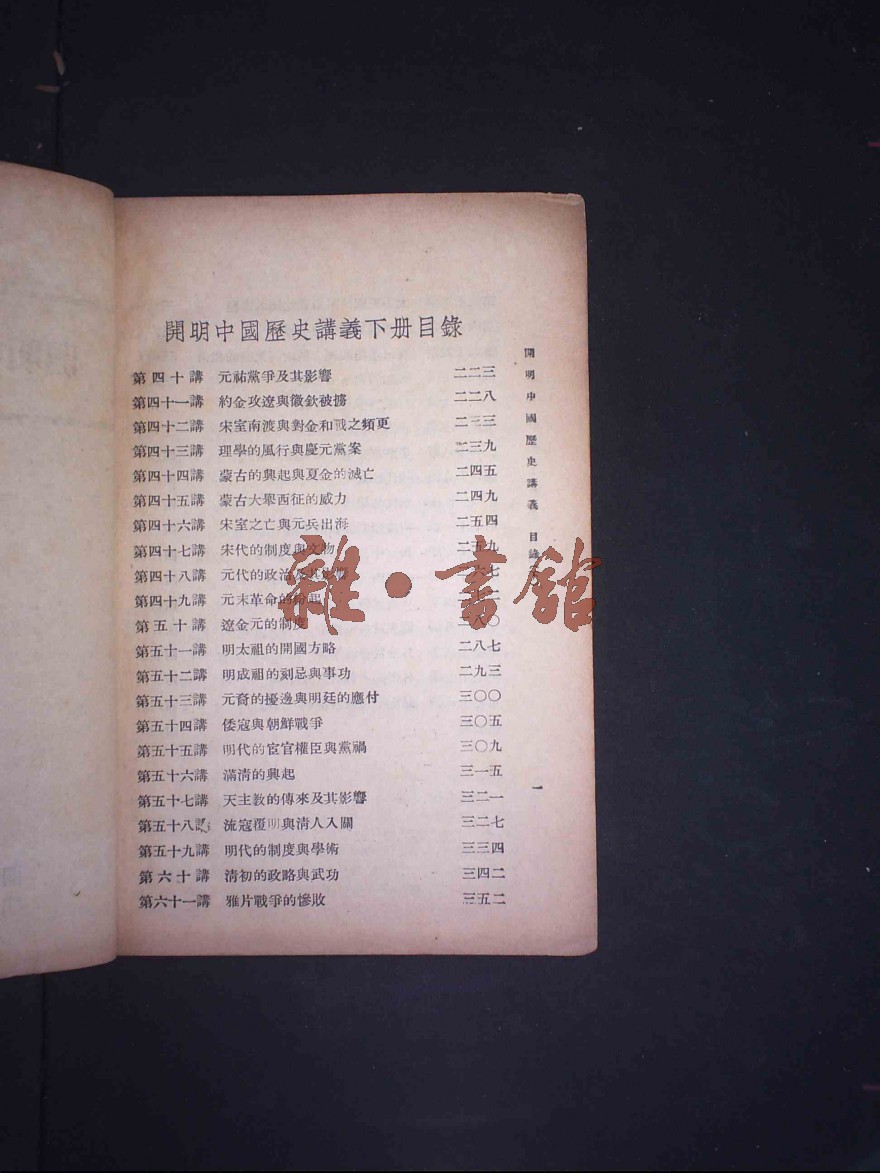 開明中國歷史講義下册目錄
第四十講 元祐黨爭及其影響 二二三
第四十一講 約金攻遼與徽欽被擄 二二八
第四十二講 宋室南渡與對金和戰之頻更 二三三
第四十三講 理學的風行與慶元黨案 二三九
第四十四講 蒙古的興起與夏金的滅亡 二四五
第四十五講 蒙古大舉西征的威力 二四九
第四十六講 宋室之亡與元兵出海 二五四
第四十七講 宋代的制度與文物 二五九
第四十八講 元代的政治及其影響 二六七
第四十九講 元末革命的紛起
第五十講 遼金元的制度 八〇
第五十一講 明太祖的開國方略 二八七
第五十二講 明成祖的刻忌與事功 二九三
第五十三講 元裔的擾邊與明廷的應付 三〇〇
第五十四講 倭寇與朝鮮戰爭 三〇五
第五十五講 明代的宦官權臣與黨禍 三〇九
第五十六講 滿清的興起 三一五
第五十七講 天主教的傳來及其影響 三二一
第五十八講 流寇覆明與清人入關 三二七
第五十九講 明代的制度與學術 三三四
第六十講 清初的政略與武功 三四二
第六十一講 雅片戰爭的慘敗 三五二
開明中國歷史講義 目錄
一
雜·書館